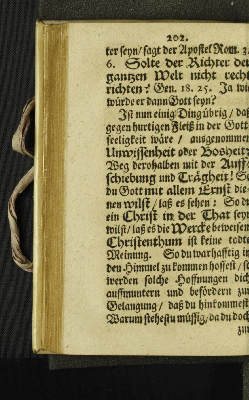 202.
ter seyn/ sagt der Apostel Rom. 3.
6. Solte der Richter der
gantzen Welt nicht recht
richten? Gen. 18. 25. Ja wie
würde er dann Gott seyn?
Ist nun einig Ding übrig/ daß
gegen hurtigen Fleiß in der Gott-
seeligkeit wäre/ ausgenommen
Unwissenheit oder Bosheit?
Weg derohalben mit der Auff-
schiebung und Trägheit! So
du Gott mit allem Ernst die-
nen wilst/ laß es sehen: So du
ein Christ in der That seyn
wilst/ laß es die Wercke beweisen
Christenthum ist keine todte
Meinung. So du warhafftig in
den Himmel zu kommen hoffest/ so
werden solche Hoffnungen dich
auffmuntern und befördern zur
Gelangung/ daß du hinkommest
Warum stehestu müssig/ da du doch
zur